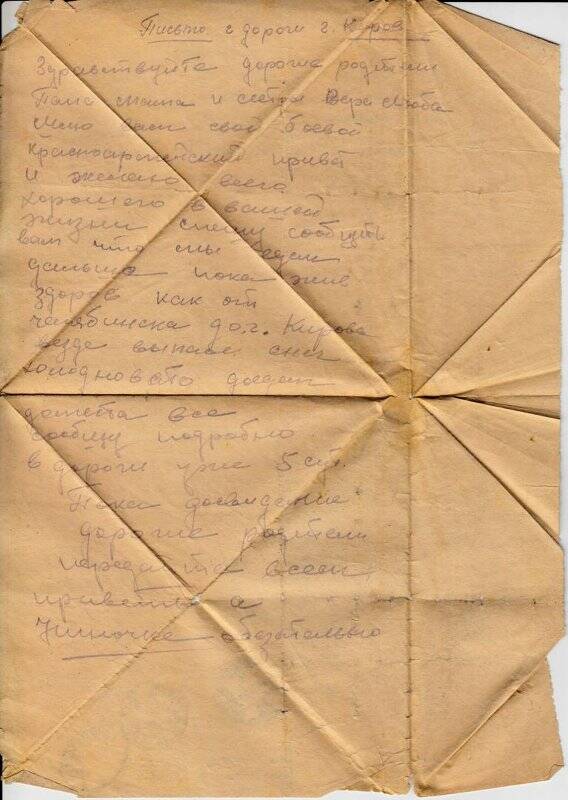 Письмо с дороги г. Киров
Здравствуйте дорогие родители
Папа мама и сестры Вера Люба
Шлю вам свой боевой
красноармейский привет
и желаю всего
хорошего в вашей
жизни спешу сообщить
вам что мы едем
дальше пока жив
здоров как от
челябинска до г. Кирова
везде выпал снег
холодновато доедем
до места все
сообщу подробно
в дороги уже 5 сут.
Пока досвидение
дорогие родители
передайте всем
приветы а
Ниночке обезательно